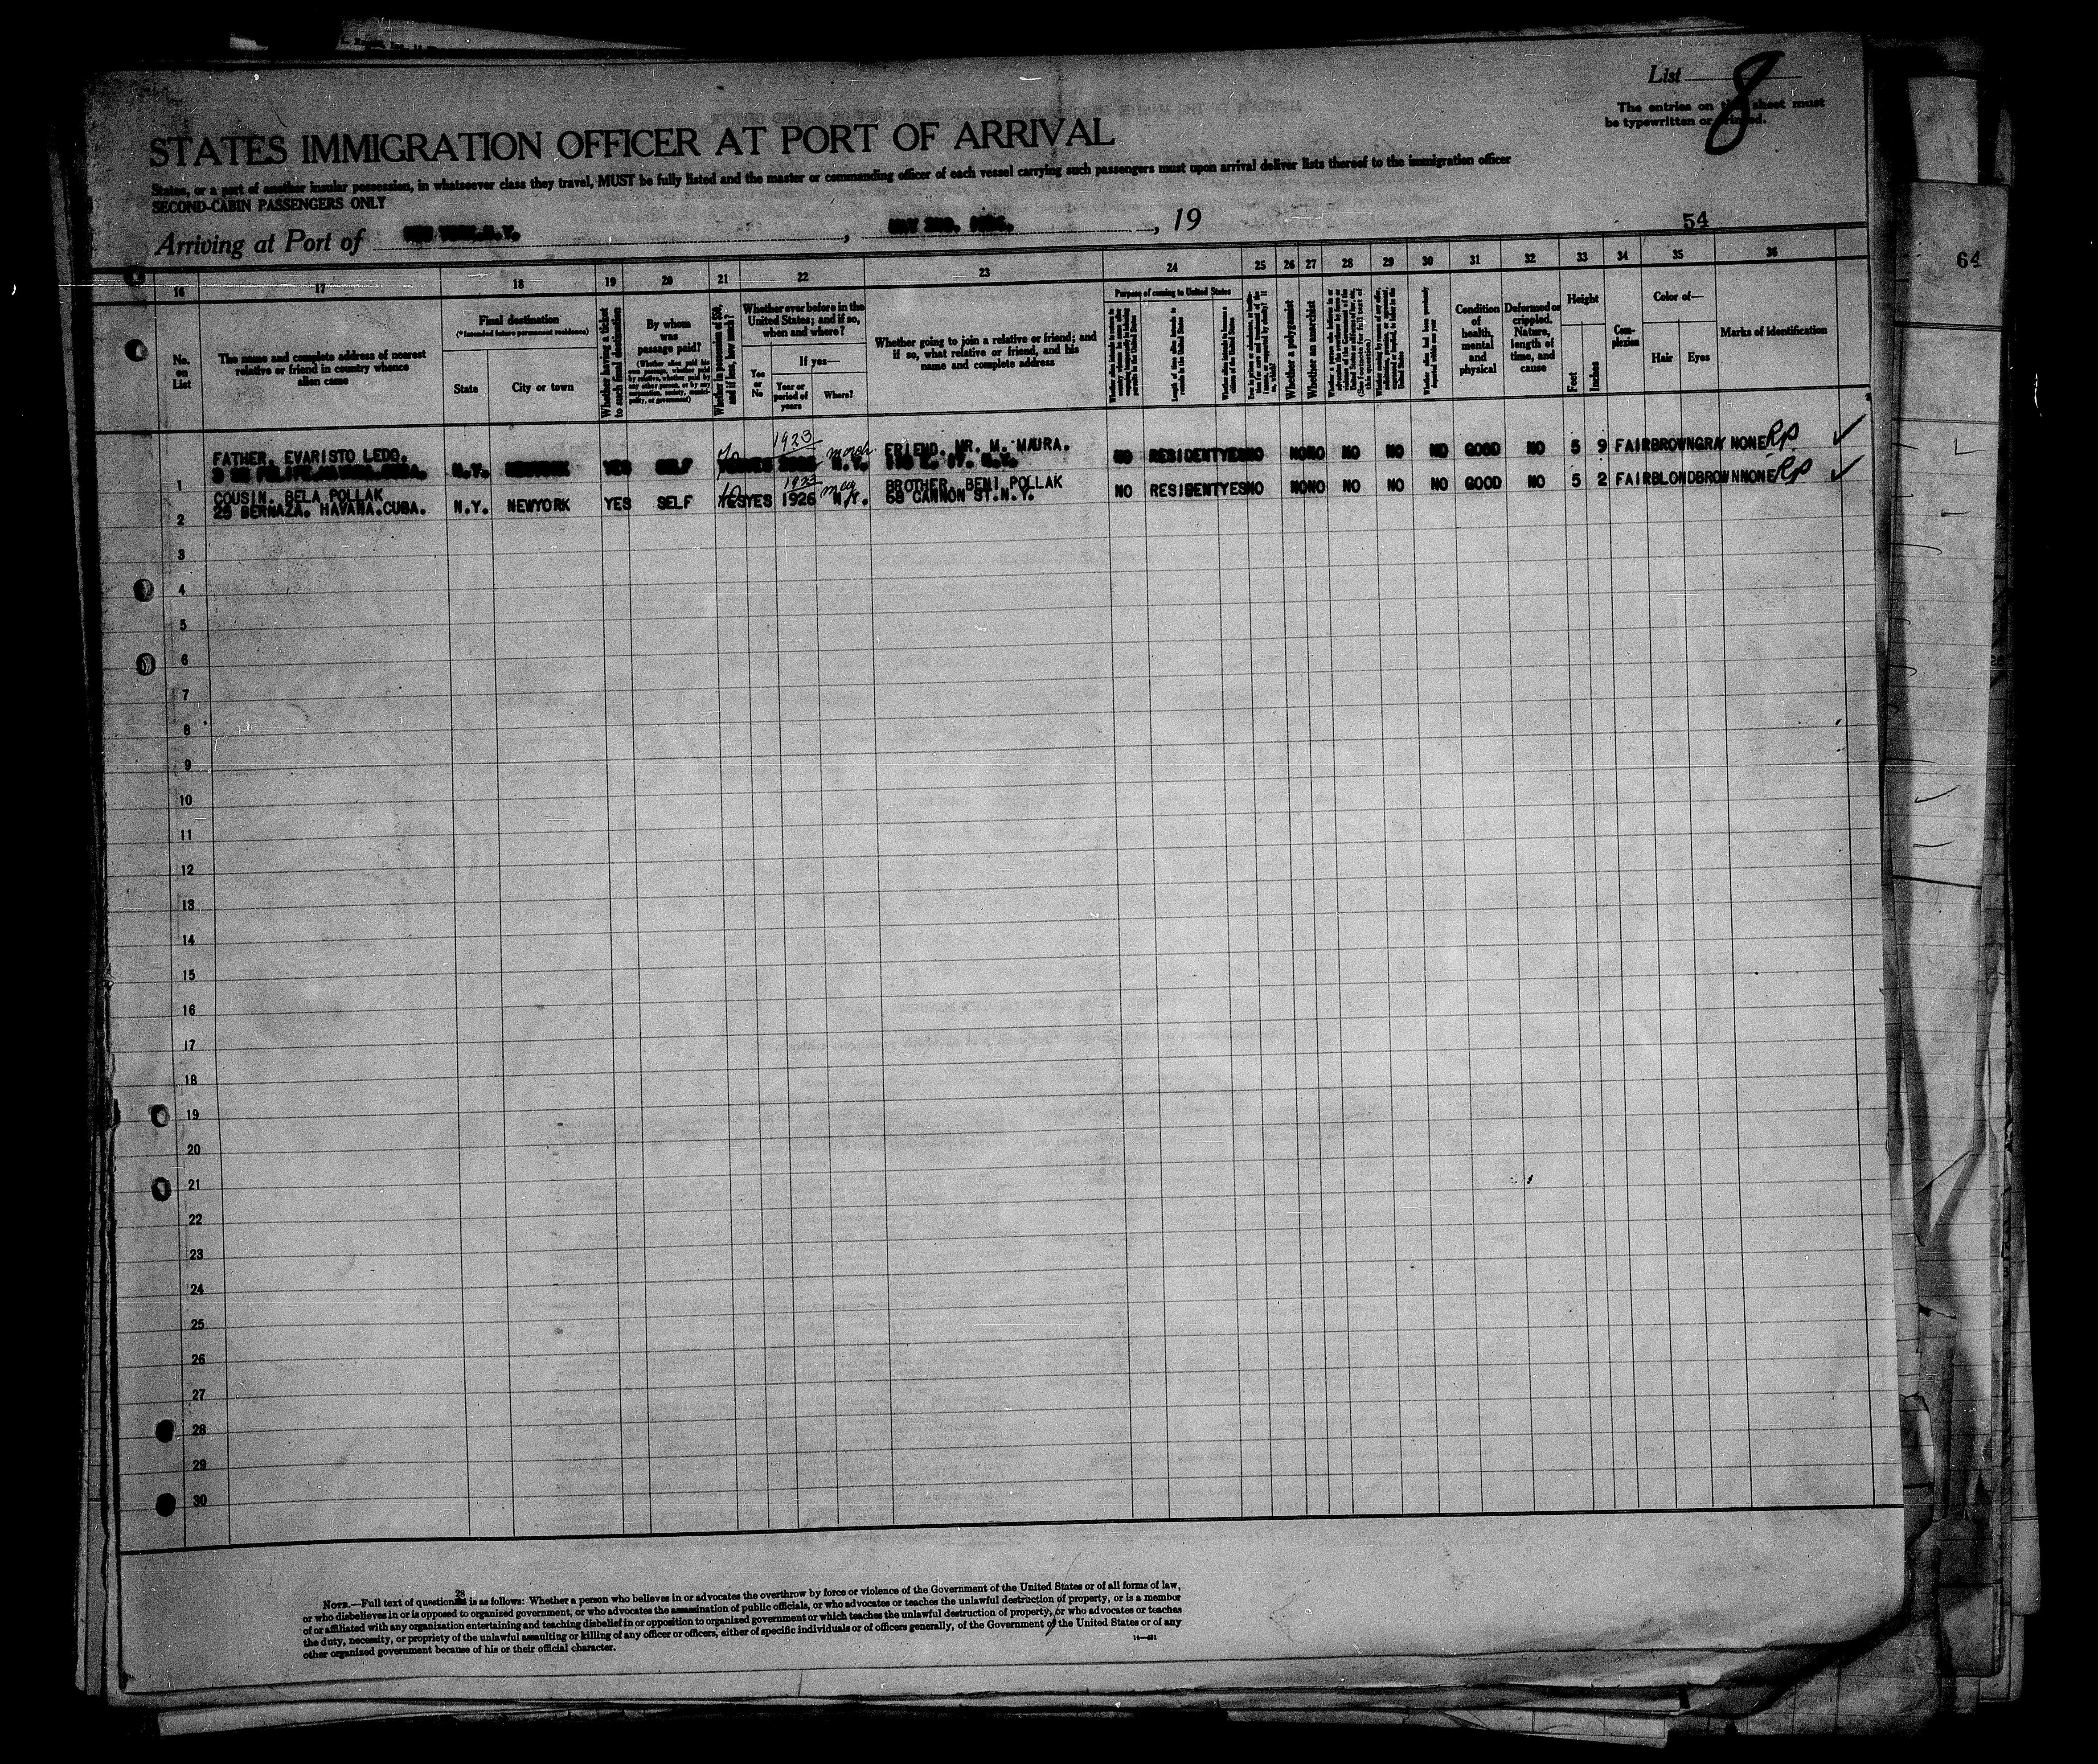 List 8
The entries on this sheet must
be typewritten or printed.
STATES IMMIGRATION OFFICER AT PORT OF ARRIVAL
States, or a port of another insular possession, in whatsoever class they travel, MUST be fully listed and the master or commanding officer of each vessel carrying such passengers must upon arrival deliver lists thereof to the immigration officer
SECOND-CABIN PASSENGERS ONLY
Arriving at Port of NEW YORK.N.Y. , MAY 2ND. , 19
54
64
16 17 18 19 20 21 22 23 24 25 26 27 28 29 30 31 32 33 34 35 36
No. on List
The name and complete address of nearest
relative or friend in country whence
alien came
Final destination
(*Intended future permanent residence)
State
City or town
Whether having a ticket
to such final destination
By whom
was
passage paid?
(Whether alien paid his
own passage, whether paid
by relative, whether paid by
any other person, or by any
corporation, society, munici-
pality, or government)
Whether in possession of $50,
and if less, how much?
Whether ever before in the
United States; and if so,
when and where?
Yes or No
If yes—
Year or
period of
years
Where?
Whether going to join a relative or friend; and
if so, what relative or friend, and his
name and complete address
Purpose of coming to United States
Length of time alien intends to
remain in the United States
Whether alien intends to become a
citizen of the United States
Whether a polygamist
Whether an anarchist
Condition
of
health,
mental
and
physical
Deformed or
crippled.
Nature,
length of
time, and
cause
Height
Feet
Inches
Com-
plexion
Color of—
Hair
Eyes
Marks of identification
1923
FATHER. EVARISTO LEDO. FRIEND. MR. M. MAURA.
1 N.Y. NEWYORK YES SELF YES N.Y. NO RESIDENT YES NO NO NO NO NO NO GOOD NO 5 9 FAIR BROWN GRAY NONE RP ✓
1923
COUSIN. BELA POLLAK BROTHER. BENI POLLAK
2 25 BERNAZA. HAVANA.CUBA. N.Y. NEWYORK YES SELF YES YES 1926 N.Y. 68 CANNON ST.N.Y. NO RESIDENT YES NO NO NO NO NO NO GOOD NO 5 2 FAIR BLOND BROWN NONE RP ✓
3
4
5
6
7
8
9
10
11
12
13
14
15
16
17
18
19
20
21
22
23
24
25
26
27
28
29
30
28
NOTE.—Full text of question is as follows: Whether a person who believes in or advocates the overthrow by force or violence of the Government of the United States or of all forms of law,
or who disbelieves in or is opposed to organized government, or who advocates the assassination of public officials, or who advocates or teaches the unlawful destruction of property, or is a member
of or affiliated with any organization entertaining and teaching disbelief in or opposition to organized government or which teaches the unlawful destruction of property, or who advocates or teaches
the duty, necessity, or propriety of the unlawful assaulting or killing of any officer or officers, either of specific individuals or of officers generally, of the Government of the United States or of any
other organized government because of his or their official character.